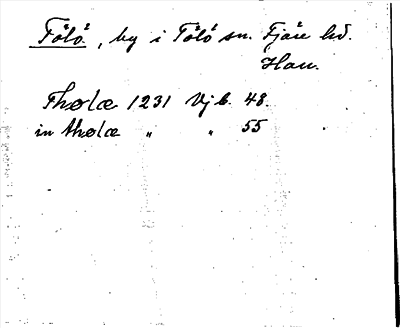 Tölö, by i Tölö sn. Fjäre hd.
Han.
Tholæ 1231 Vj b. 48.
in tholæ " " 55